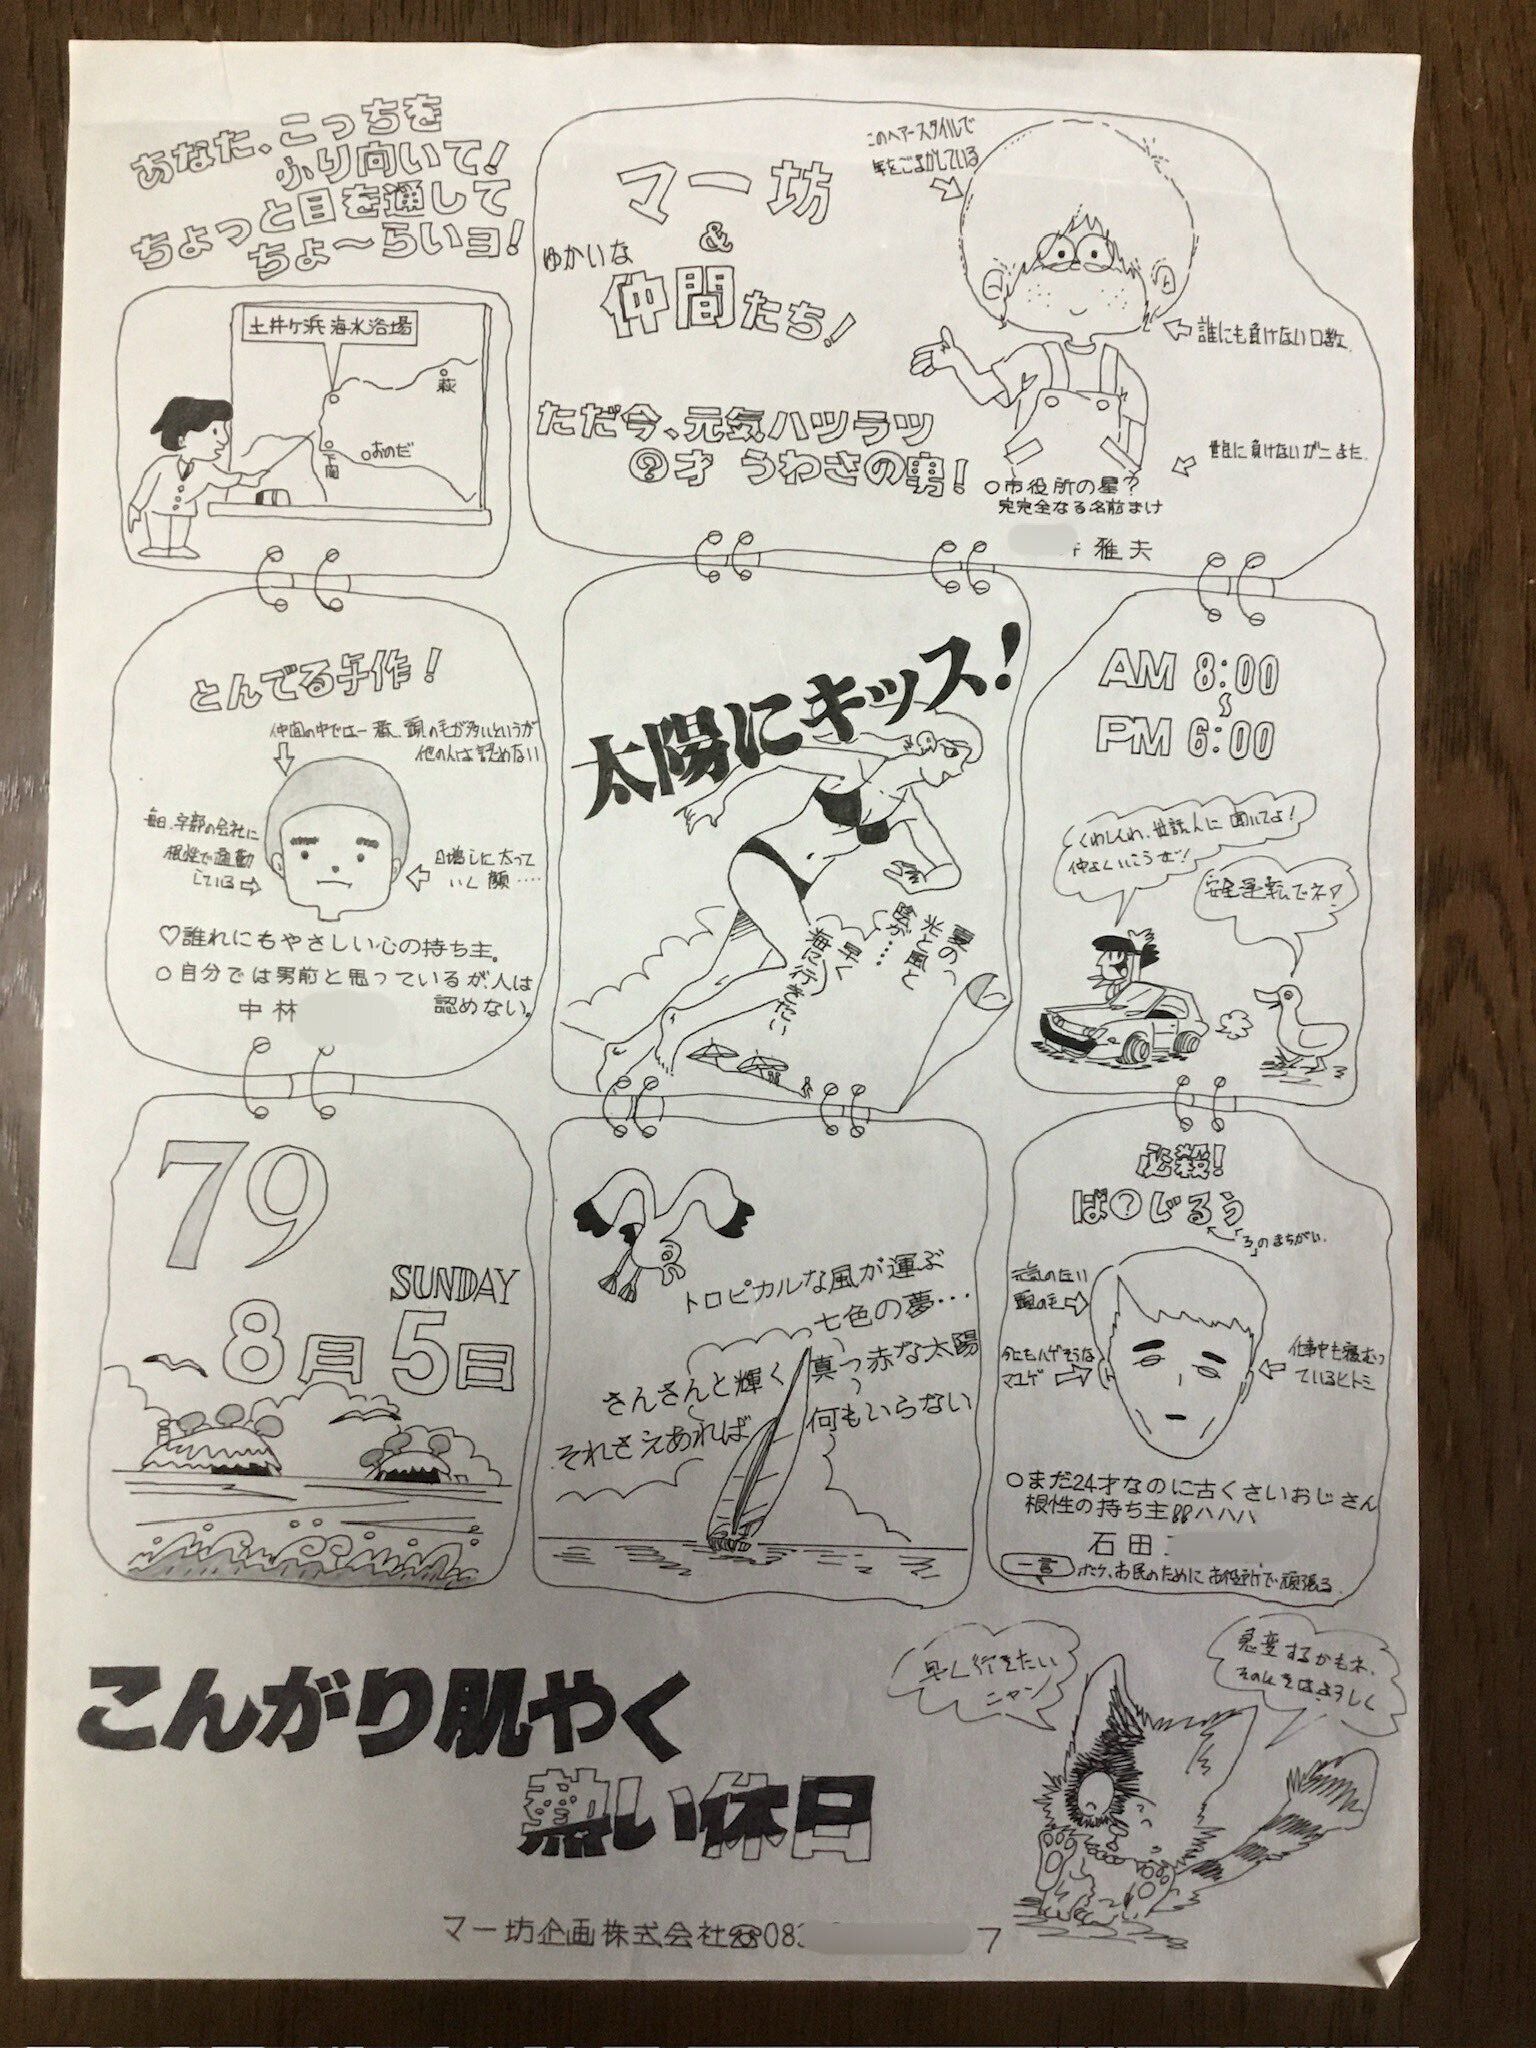 あなた、こっちを
ふり向いて!
ちょっと目を通して
ちょ〜らいヨ!
土井ケ浜海水浴場
萩
下関
おのだ
マー坊
&
ゆかいな
仲間たち!
このヘアースタイルで
年をごまかしている
誰にも負けない口数
ただ今、元気ハツラツ
?才 うわさの男!
に負けないガニまた
○市役所の星?
完完全なる名前まけ
雅夫
とんでる与作!
仲間の中では一番、頭の毛が多いというが
他の人は認めない
毎日、宇部の会社に
根性で通勤
している
日増しに太って
いく顔……
♡誰れにもやさしい心の持ち主。
○自分では男前と思っているが、人は
認めない。
中林
太陽にキッス!
夏の
光と風と
陰が…
早く
海に行きたい
AM 8:00
〜
PM 6:00
くわしくわ、世話人に聞いてよ!
仲よくいこうぜ!
安全運転でネ!
79
SUNDAY
8月5日
トロピカルな風が運ぶ
七色の夢…
さんさんと輝く真っ赤な太陽
それさえあれば何もいらない
必殺!
ば?じるう
「ろ」のまちがい.
元気のない
頭の毛
今にもハゲそうな
マユゲ
仕事中も寝むっ
ているヒトミ
○まだ24才なのに古くさいおじさん
根性の持ち主!!ハハハ
石田
一言 ボク、市民のために市役所で頑張る
こんがり肌やく
熱い休日
早く行きたい
ニャン
急変するかもネ.
そのときはよろしく
マー坊企画株式会社☎08
7